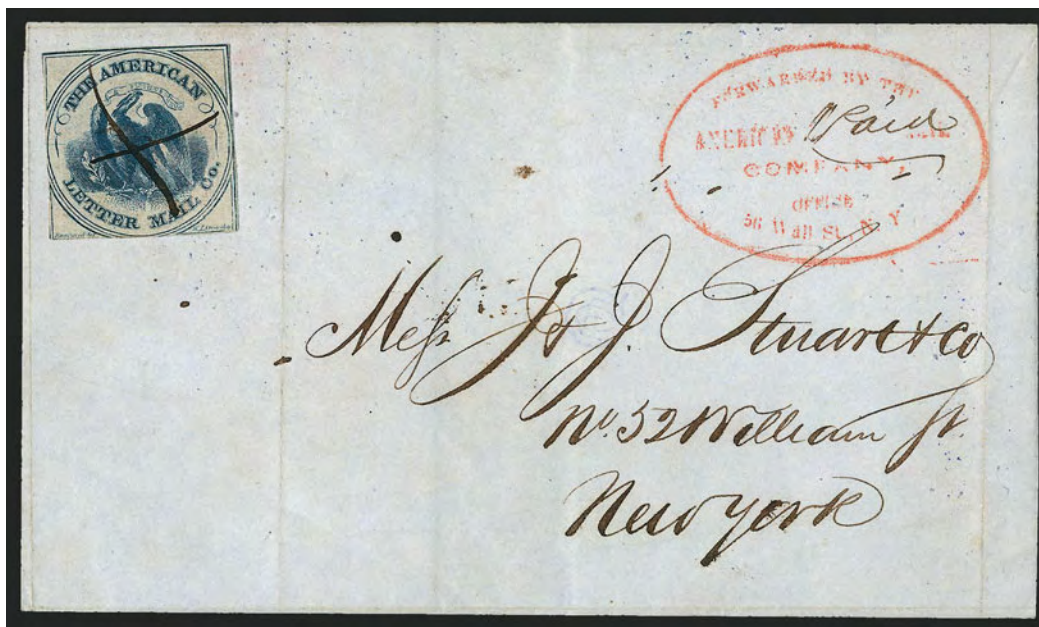 THE AMERICAN
LETTER MAIL Co.
FORWARDED BY THE
AMERICAN MAIL
COMPANY,
OFFICE
56 Wall St. N Y
Paid
Messʳˢ J & J. Stuart & Co
No. 52 William St.
New York